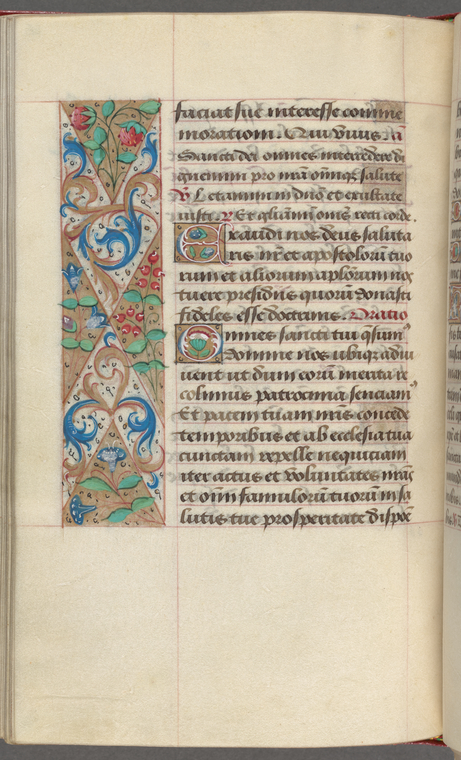 faciat sue interesse comme
morationi. Qui viuis. a
Sancti dei omnes intercedere di
gnemini pro nr̄a omniūqȝ salute
V̷ Letamini in dn̄o et exultate
iusti. R̷ Et gl'iamini om̄s recti corde.
Exaudi nos deus saluta
ris nr̄ et apostolorū tuo
rum et aliorum aplorum nos
tuere presidiis quorū donasti
fideles esse doctrinis. Oratio
Omnes sancti tui q̄sum9
domine nos ubiqȝ adiu
uent ut dum eorū merita re
colimus patrocinia senciam9
Et pacem tuam nr̄is concede
temporibus et ab ecclesia tua
cunctam repelle nequiciam
iter actus et voluntates nr̄as
et om̄i famulorū tuorū in sa
lutis tue prosperitate dispoē